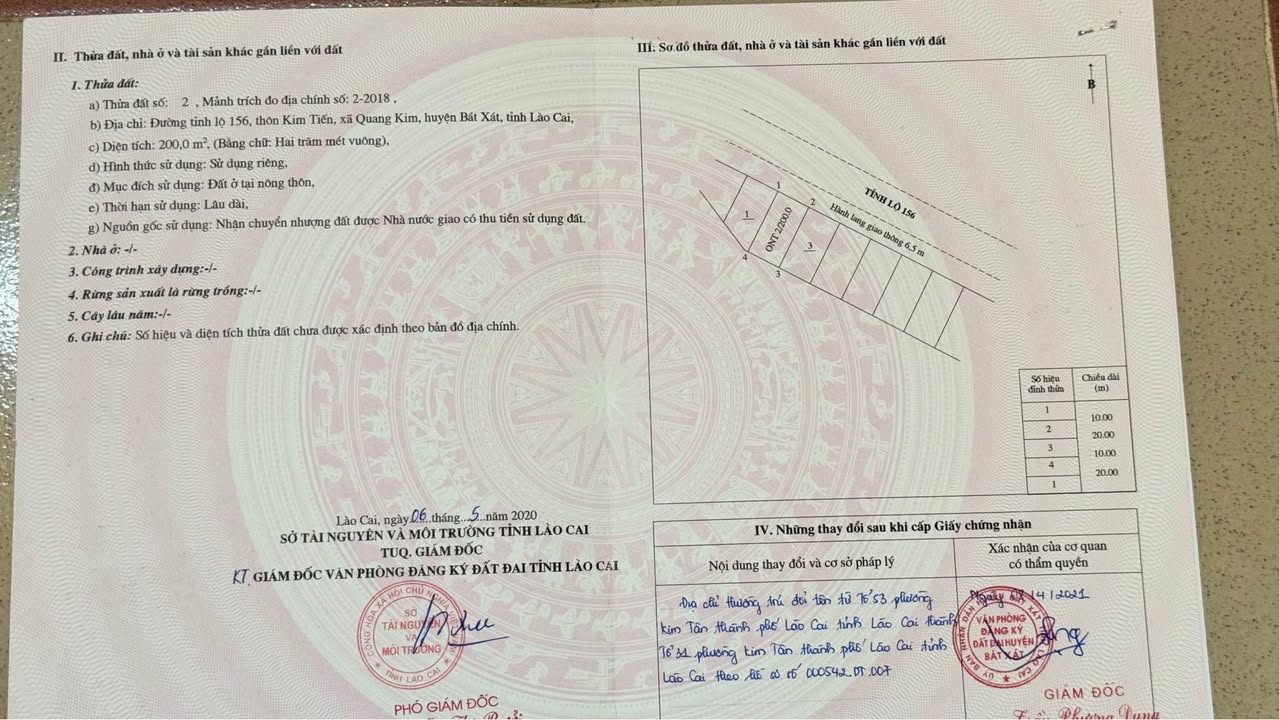 II. Thửa đất, nhà ở và tài sản khác gắn liền với đất
1. Thửa đất:
a) Thửa đất số: 2 , Mảnh trích đo địa chính số: 2-2018 ,
b) Địa chỉ: Đường tỉnh lộ 156, thôn Kim Tiến, xã Quang Kim, huyện Bát Xát, tỉnh Lào Cai,
c) Diện tích: 200,0 m², (Bằng chữ: Hai trăm mét vuông),
d) Hình thức sử dụng: Sử dụng riêng,
đ) Mục đích sử dụng: Đất ở tại nông thôn,
e) Thời hạn sử dụng: Lâu dài,
g) Nguồn gốc sử dụng: Nhận chuyển nhượng đất được Nhà nước giao có thu tiền sử dụng đất.
2. Nhà ở: -/-
3. Công trình xây dựng:-/-
4. Rừng sản xuất là rừng trồng:-/-
5. Cây lâu năm:-/-
6. Ghi chú: Số hiệu và diện tích thửa đất chưa được xác định theo bản đồ địa chính.
Lào Cai, ngày 06 tháng 5 năm 2020
SỞ TÀI NGUYÊN VÀ MÔI TRƯỜNG TỈNH LÀO CAI
TUQ. GIÁM ĐỐC
KT. GIÁM ĐỐC VĂN PHÒNG ĐĂNG KÝ ĐẤT ĐAI TỈNH LÀO CAI
CỘNG HÒA XÃ HỘI CHỦ NGHĨA VIỆT NAM
SỞ
TÀI NGUYÊN
VÀ
MÔI TRƯỜNG
TỈNH LÀO CAI
PHÓ GIÁM ĐỐC
III. Sơ đồ thửa đất, nhà ở và tài sản khác gắn liền với đất
B
TỈNH LỘ 156
Hành lang giao thông 6.5 m
1
2
1
ONT 2/200.0
3
4
3
Số hiệu đỉnh thửa
Chiều dài (m)
1
10.00
2
20.00
3
10.00
4
20.00
1
IV. Những thay đổi sau khi cấp Giấy chứng nhận
Nội dung thay đổi và cơ sở pháp lý
Xác nhận của cơ quan
có thẩm quyền
Địa chỉ thường trú đổi tên từ Tổ 53 phường
Kim Tân thành phố Lào Cai tỉnh Lào Cai thành
Tổ 31 phường Kim Tân thành phố Lào Cai tỉnh
Lào Cai theo hồ sơ số 000542.DT.007
Ngày /4/2021
VĂN PHÒNG
ĐĂNG KÝ
ĐẤT ĐAI HUYỆN
BÁT XÁT
GIÁM ĐỐC